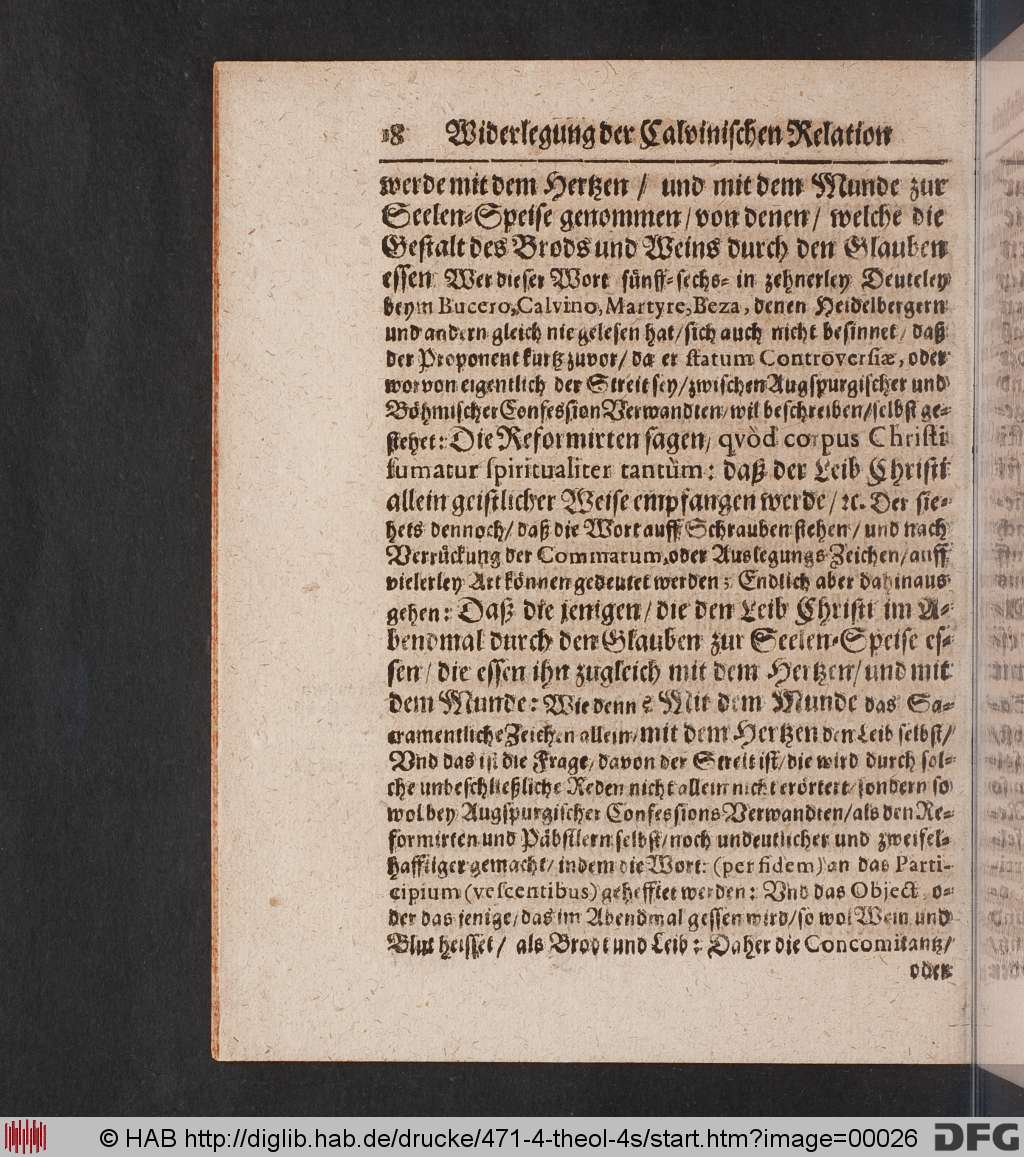 18 Widerlegung der Calvinischen Relation
werde mit dem Hertzen / und mit dem Munde zur
Seelen-Speise genommen / von denen / welche die
Gestalt des Brods und Weins durch den Glauben
essen Wer dieser Wort fünff-sechs- in zehnerley Deuteley
beym Bucero, Calvino, Martyre, Beza, denen Heidelbergern
und andern gleich nie gelesen hat / sich auch nicht besinnet / daß
der Proponent kurtz zuvor / da er statum Controversiæ, oder
worvon eigentlich der Streit sey / zwischen Augspurgischer und
Böhmischer Confession Verwandten / wil beschreiben / selbst ge-
stehet: Die Reformirten sagen / qvòd corpus Christi
sumatur spiritualiter tantùm: daß der Leib Christi
allein geistlicher Weise empfangen werde / ꝛc. Der sie-
hets dennoch / daß die Wort auff Schrauben stehen / und nach
Verrückung der Commatum, oder Auslegungs Zeichen / auff
vielerley Art können gedeutet werden; Endlich aber dahinaus
gehen: Daß die jenigen / die den Leib Christi im A-
bendmal durch den Glauben zur Seelen-Speise es-
sen / die essen ihn zugleich mit dem Hertzen / und mit
dem Munde: Wie denn? Mit dem Munde das Sa-
cramentliche Zeichen allein / mit dem Hertzen den Leib selbst /
Vnd das ist die Frage / davon der Streit ist / die wird durch sol-
che unbeschließliche Reden nicht allein nicht erörtert / sondern so
wol bey Augspurgischer Confessions Verwandten / als den Re-
formirten und Päbstlern selbst / noch undeutlicher und zweifel-
hafftiger gemacht / indem die Wort: (per fidem) an das Parti-
cipium (vescentibus) gehefftet werden: Vnd das Object o-
der das jenige / das im Abendmal gessen wird / so wol Wein und
Blut heisset / als Brodt und Leib: Daher die Concomitantz /
oder
© HAB http://diglib.hab.de/drucke/471-4-theol-4s/start.htm?image=00026 DFG